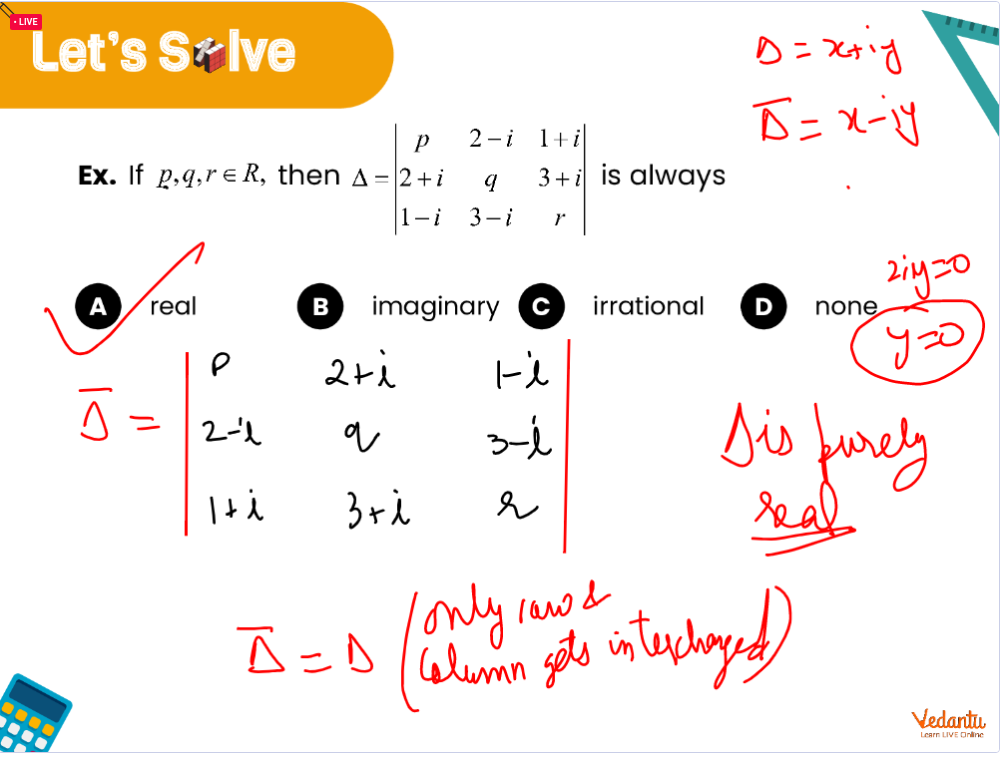 LIVE
Let's Solve
Δ = x+iy
Δ̅ = x-iy
Ex. If p,q,r ∈ R, then Δ = | p 2-i 1+i | is always
| 2+i q 3+i |
| 1-i 3-i r |
2iy=0
y=0
A real B imaginary C irrational D none
Δ̅ = | p 2+i 1-i |
| 2-i q 3-i |
| 1+i 3+i r |
Δ is purely
real
Δ̅ = Δ (only row &
column gets interchanged)
Vedantu
Learn LIVE Online